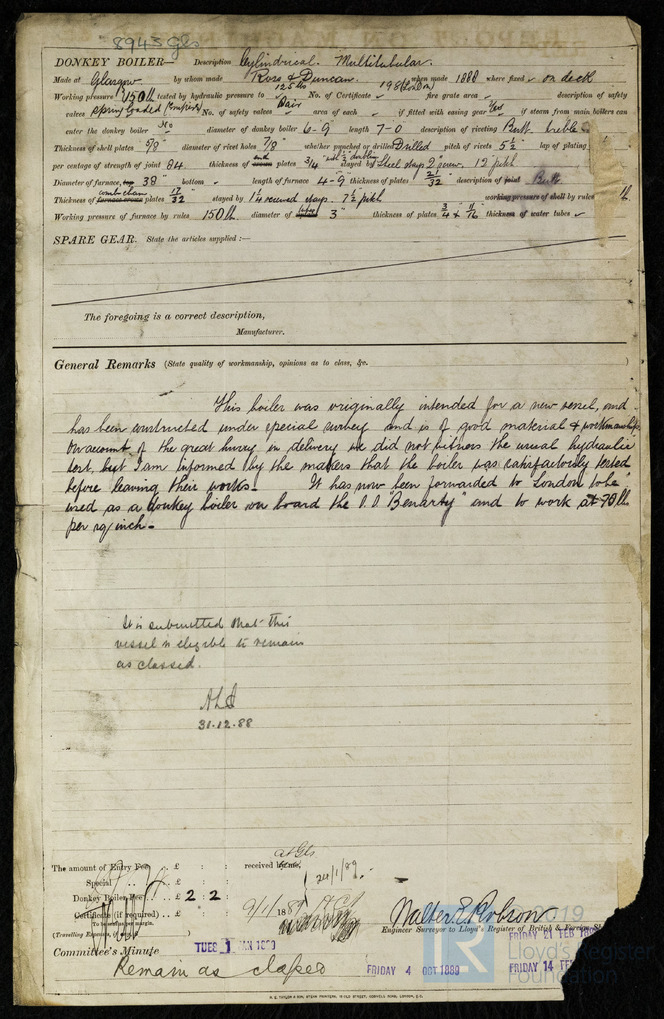 8943 Gls
DONKEY BOILER— Description Cylindrical. Multitubular.
Made at Glasgow by whom made Ross & Duncan when made 1888 where fixed on deck
125 lbs 198 (London)
Working pressure 150 lb tested by hydraulic pressure to No. of Certificate fire grate area description of safety
valves Spring loaded No. of safety valves Pair area of each if fitted with easing gear Yes if steam from main boilers can
enter the donkey boiler No diameter of donkey boiler 6-9 length 7-0 description of riveting Butt treble
Thickness of shell plates 9/8 diameter of rivet holes 7/8 whether punched or drilled Drilled pitch of rivets 5½ lap of plating
per centage of strength of joint 84 thickness of plates 3/4 stayed by Steel stays 2" 12" pitch
Diameter of furnace, top 38" bottom length of furnace 4-9 thickness of plates 21/32 description of joint Butt
Thickness of furnace crown plates 17/32 stayed by 1¼ screwed stays. 7½ pitch working pressure of shell by rules
Working pressure of furnace by rules 150 lb diameter of 3" thickness of plates 3/4 & 11/16 thickness of water tubes
SPARE GEAR. State the articles supplied :—
The foregoing is a correct description,
Manufacturer.
General Remarks (State quality of workmanship, opinions as to class, &c.
This boiler was originally intended for a new vessel, and
has been constructed under special survey and is of good material & workmanship
On account of the great hurry in delivery we did not witness the usual hydraulic
test, but I am informed by the makers that the boiler was satisfactorily tested
before leaving their works. It has now been forwarded to London to be
used as a donkey boiler on board the S.S. "Benarty" and to work at 70 lb
per sq/inch.
It is submitted that this
vessel is eligible to remain
as classed.
31.12.88
The amount of Entry Fee .. £ : : received by me, at Gls
Special .. .. £ : : 24/1/89.
Donkey Boiler Fee .. £ 2 : 2 :
Certificate (if required) .. £ : : 9/1/1889
To be sent as per margin.
(Travelling Expenses, if any, £ )
Walter E Robson
Engineer Surveyor to Lloyd's Register of British & Foreign
Committee's Minute TUES 1 JAN 1889
Remain as classed
FRIDAY 4 OCT 1889
FRIDAY 21 FEB
FRIDAY 14 FEB
© 2019
LR
Lloyd's Register
Foundation